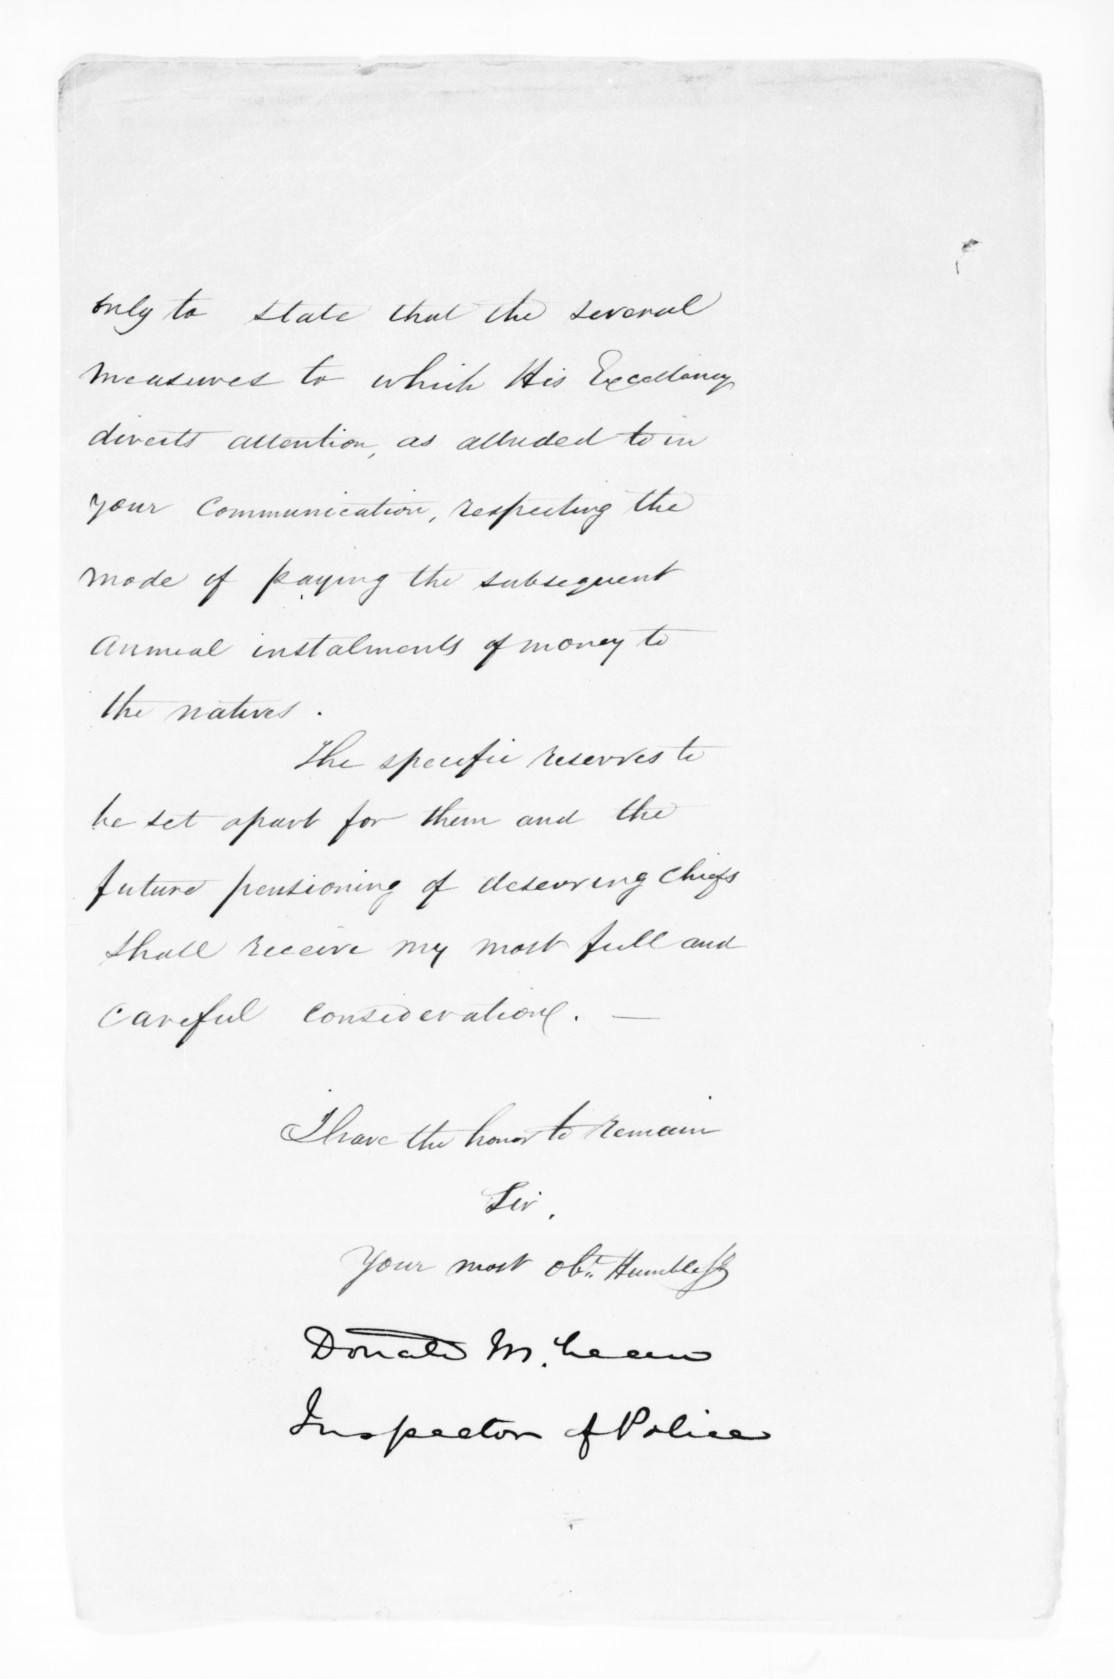 only to state that the several
measures to which His Excellency
directs attention, as alluded to in
your communication, respecting the
mode of paying the subsequent
annual instalments of money to
the natives.
The specific reserves to
be set apart for them and the
future pensioning of deserving chiefs
shall receive my most full and
careful consideration. —
I have the honor to remain
Sir,
Your most obt. Humble St
Donald McLean
Inspector of Police